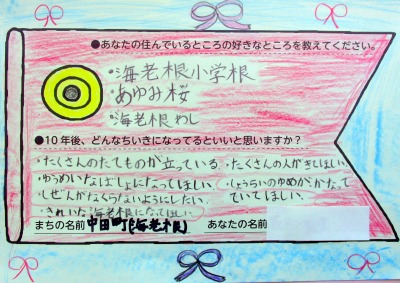 ●あなたの住んでいるところの好きなところを教えてください。
・海老根小学根
・あゆみ桜
・海老根わし
●10年後、どんなちいきになってるといいと思いますか？
・たくさんのたてものが立っている。・たくさんの人がきてほしい。
・ゆうめいなばしょになってほしい。・しょうらいのゆめがかなっ
・しぜんがなくならないようにしたい。ていてほしい。
・きれいな海老根になってほしい。
まちの名前 中田町(海老根) あなたの名前